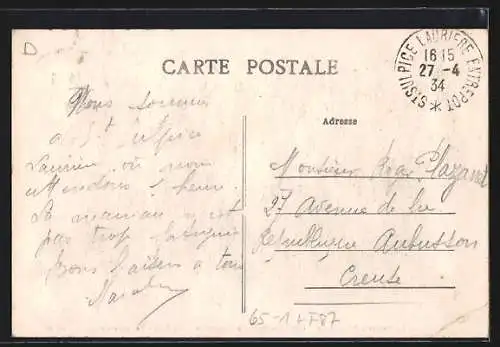 D
CARTE POSTALE
ST SULPICE LAURIERE ENTREPOT *
16 15
27 - 4
34
Adresse
Nous sommes
a St Sulpice
Laurière où nous
attendons 1 heure
La maman n'est
pas trop fatiguée
Bons baisers a tous
Monsieur Roger Plazanet
27 Avenue de la
République Aubusson
Creuse
65-1